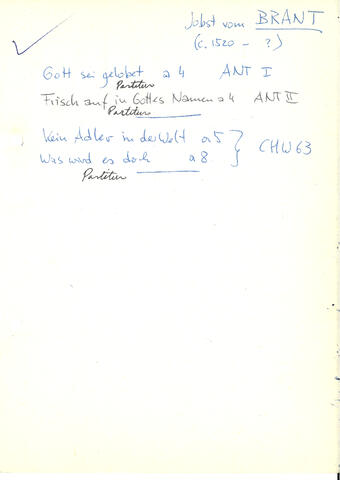 Jobst vom BRANT
(c. 1520 - ?)
Gott sei gelobet a 4 ANT I
Partitur
Frisch auf in Gottes Namen a 4 ANT II
Partitur
Kein Adler in der Welt a5
Was wird es doch a 8 } CHW 63
Partitur